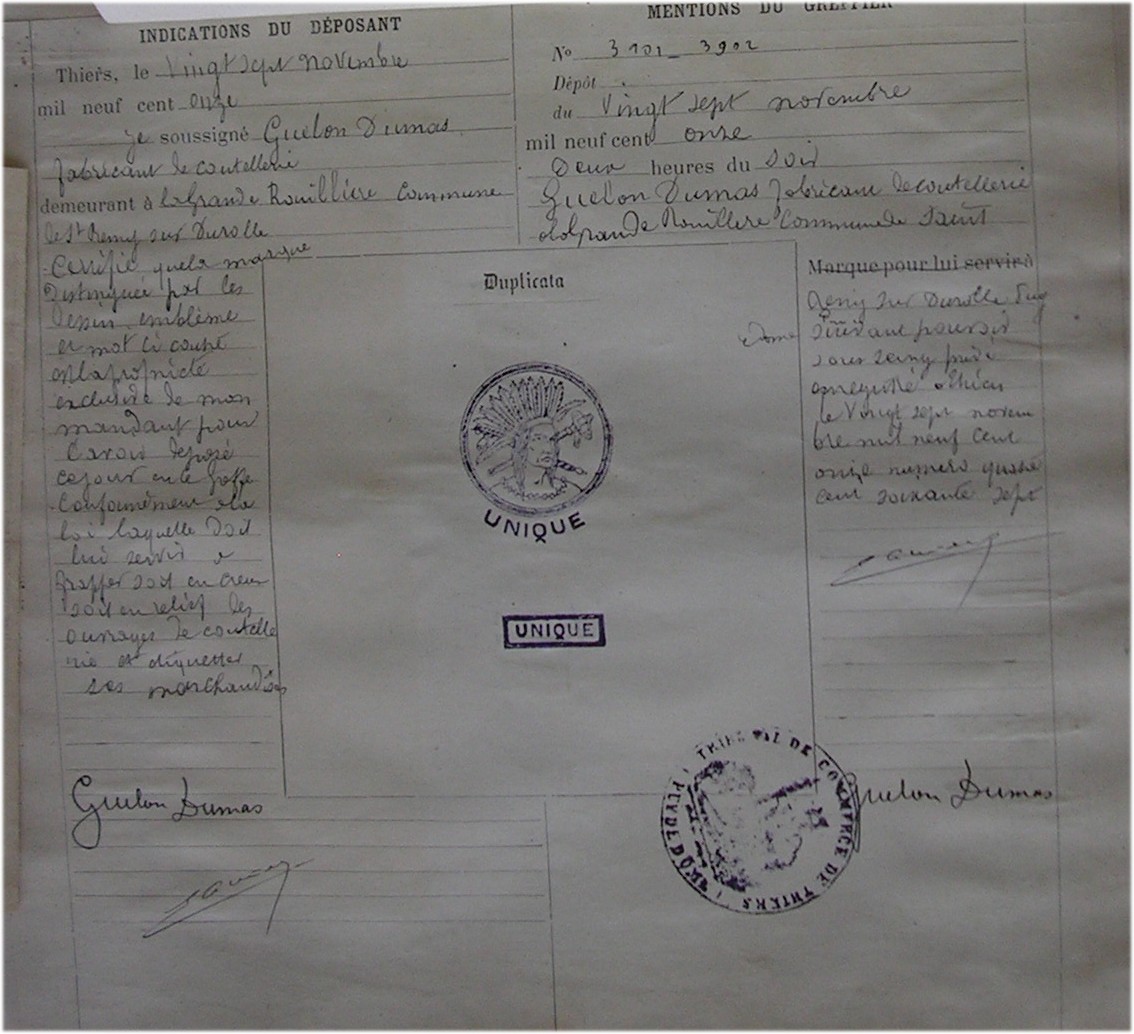 INDICATIONS DU DÉPOSANT
Thiers, le vingt sept novembre
mil neuf cent onze
je soussigné Guelon Dumas
fabricant de coutellerie
demeurant à la Grande Rouillière Commune
de St Remy sur Durolle
Certifie que la marque
distinguée par les
dessin, emblème
et mot ci contre
est la propriété
exclusive de mon
mandant pour
l'avoir déposé
ce jour au Greffe
Conformément à la
loi laquelle doit
lui servir à
frapper soit en creux
soit en relief les
ouvrages de coutelle
rie et étiquetter
ses marchandises
Guelon Dumas
MENTIONS DU GREFFIER
No 3901 - 3902
Dépôt
du vingt sept novembre
mil neuf cent onze
Deux heures du soir
Guelon Dumas fabricant de coutellerie
à la Grande Rouillère Commune de Saint
Marque pour lui servir à
Remy sur Durolle
suivant pouvoir
sous seing privé
enregistré à Thiers
le vingt sept novem
bre mil neuf cent
onze numéro quatre
cent soixante sept
Guelon Dumas
Duplicata
UNIQUE
UNIQUE
TRIBUNAL DE COMMERCE DE THIERS
PUY DE DÔME